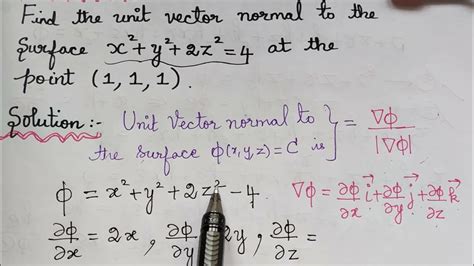 Find the unit vector normal to the
surface x²+y²+2z²=4 at the
point (1, 1, 1).
Solution:- Unit Vector normal to
the surface φ(x,y,z)=C is } = ∇φ/|∇φ|
φ = x²+y²+2z²-4. ∇φ = ∂φ/∂x i⃗ + ∂φ/∂y j⃗ + ∂φ/∂z k⃗
∂φ/∂x = 2x, ∂φ/∂y 2y, ∂φ/∂z =